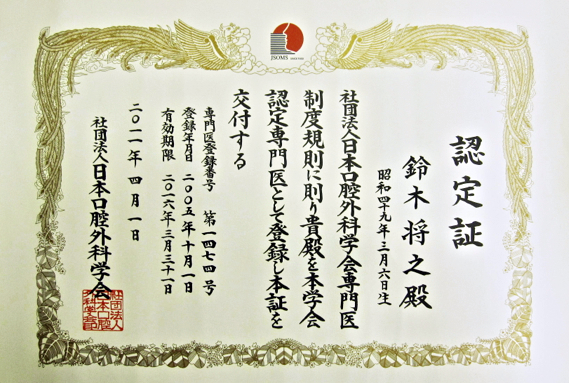 JSOMS
認定証
鈴木将之殿
昭和四十九年三月六日生
社団法人日本口腔外科学会専門医
制度規則に則り貴殿を本学会
認定専門医として登録し本証を
交付する
専門医登録番号 第一四七四号
登録年月日 二〇〇五年十月一日
有効期限 二〇一六年三月三十一日
二〇一一年四月一日
社団法人日本口腔外科学会
社団法人
日本口腔
外科学会